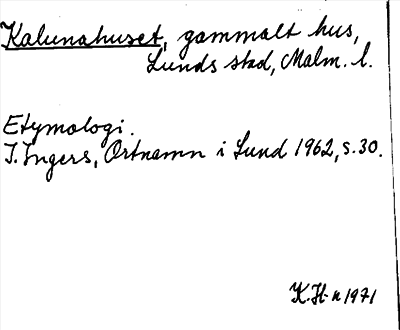 Kalunahuset, gammalt hus,
Lunds stad, Malm. l.
Etymologi.
I. Ingers, Ortnamn i Lund 1962, s. 30.
K. H-n 1971